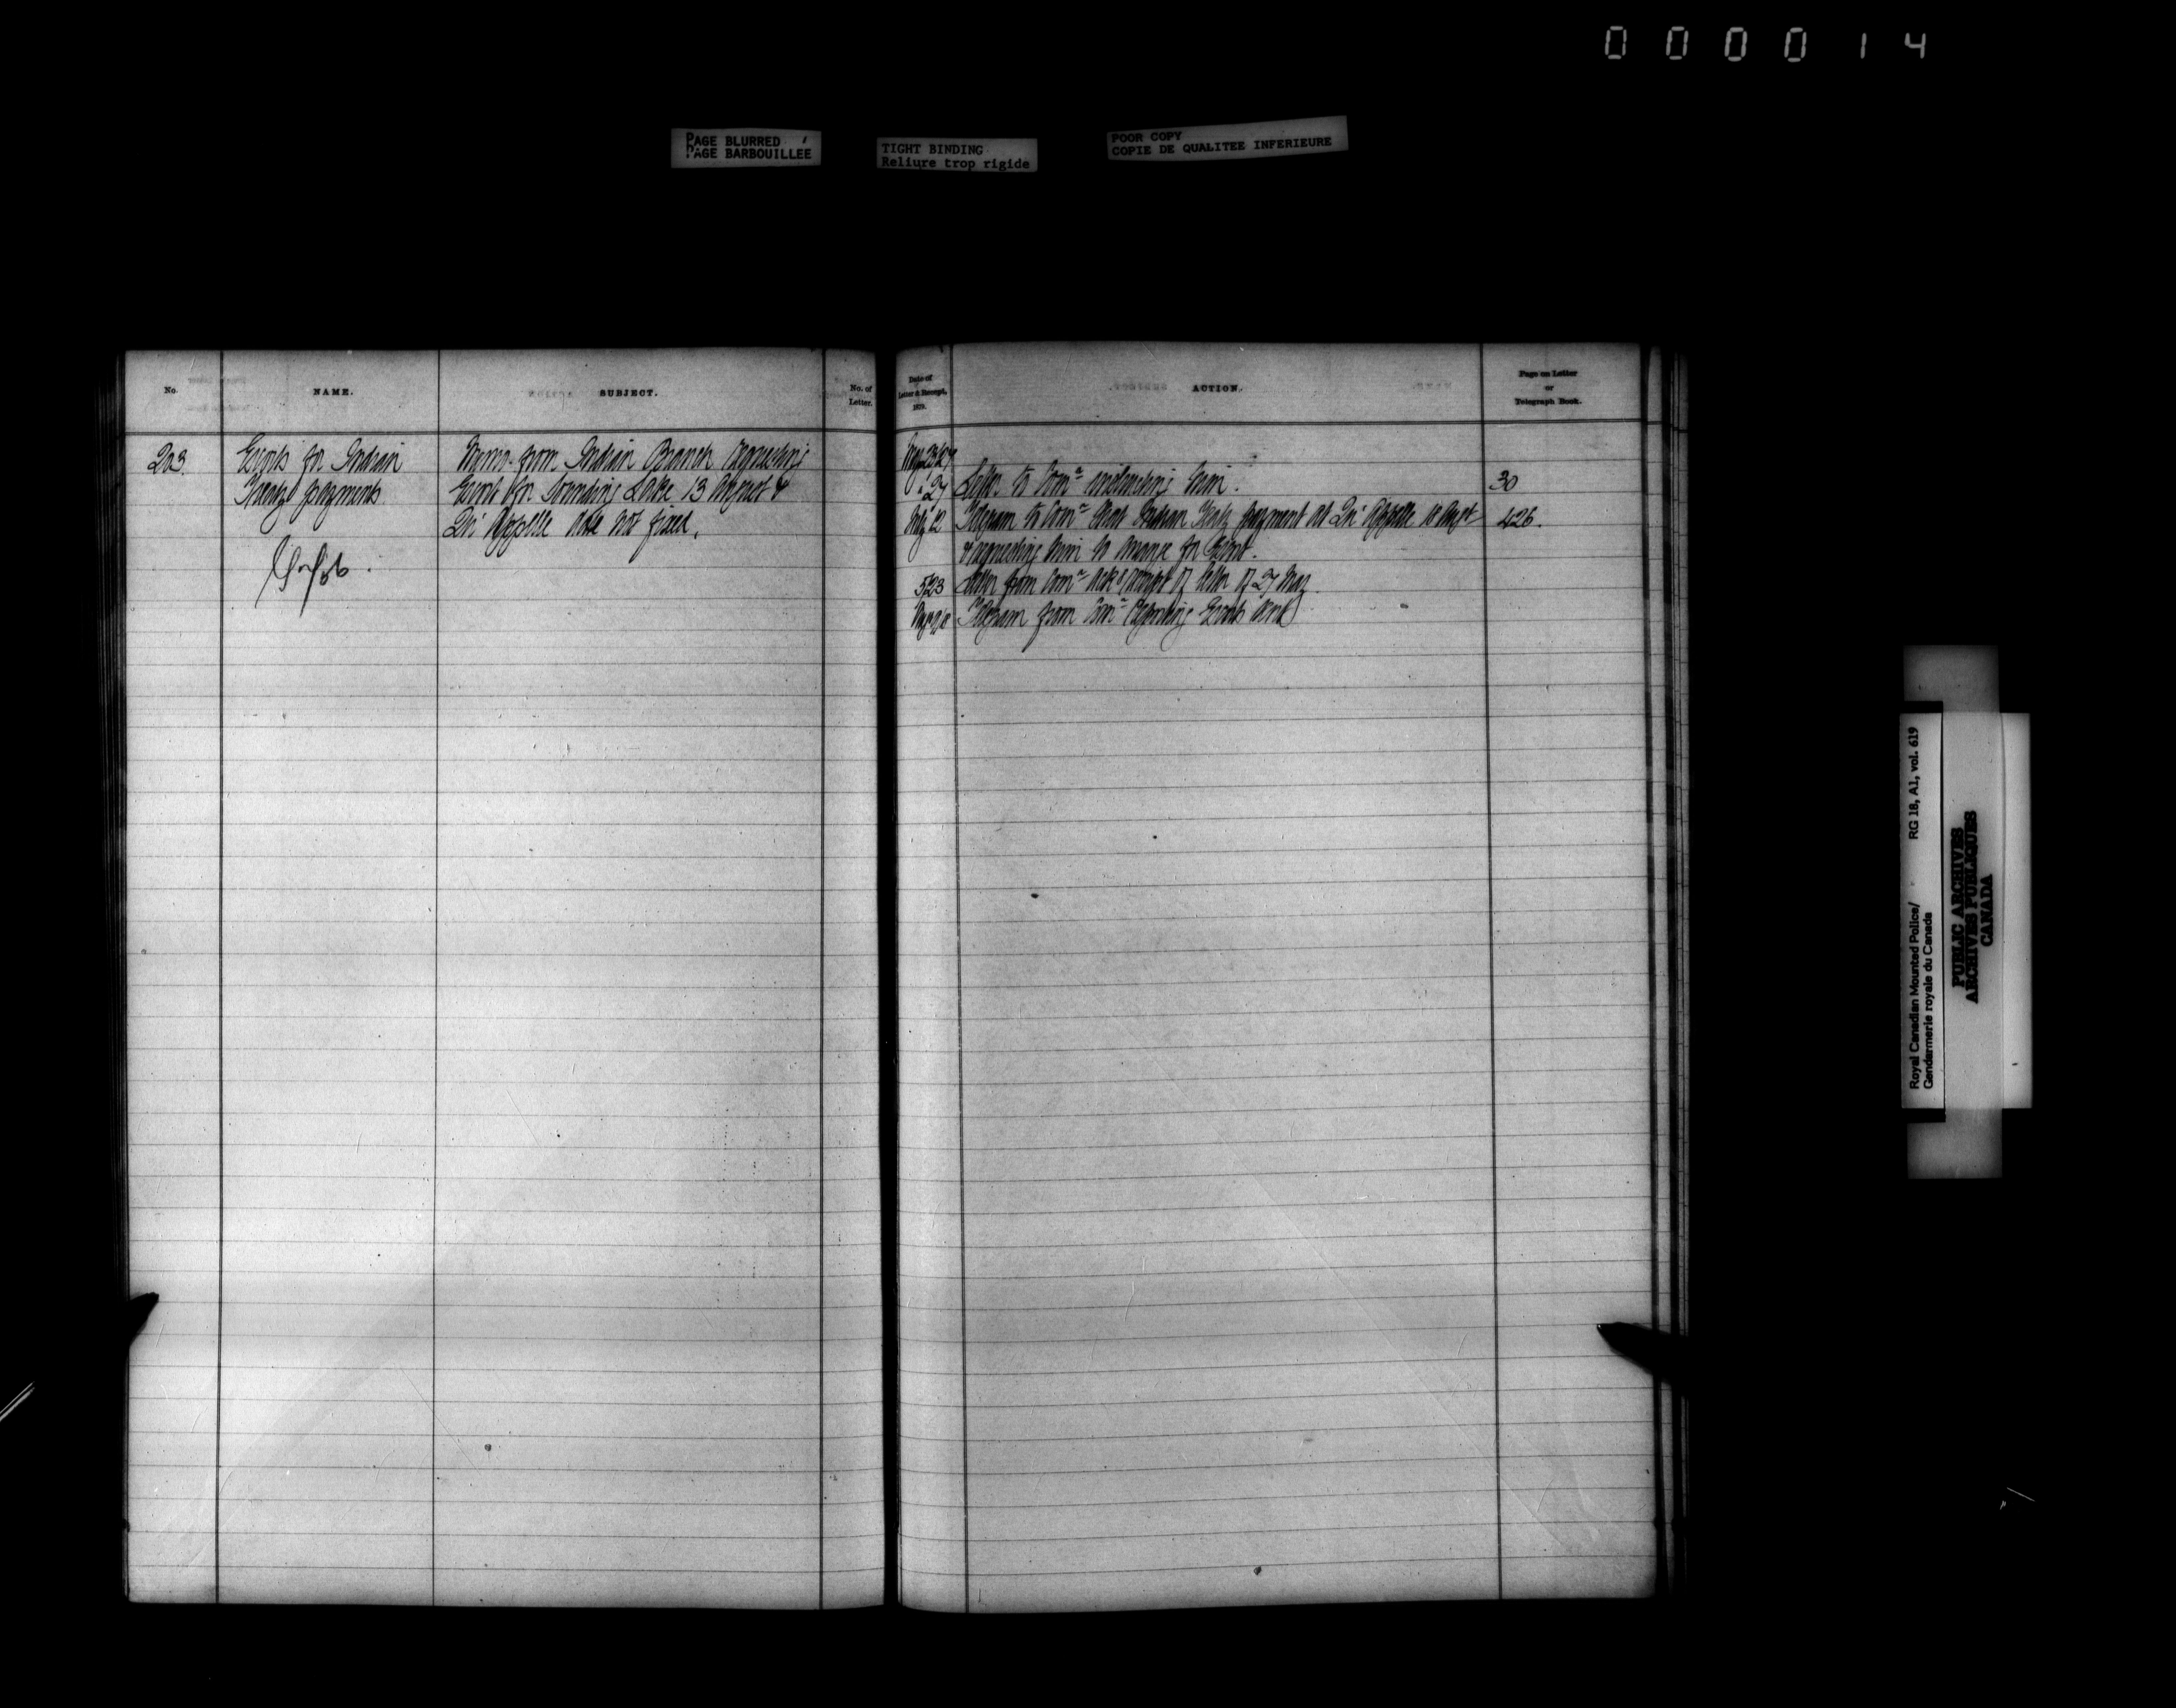 000014
PAGE BLURRED
PAGE BARBOUILLEE
TIGHT BINDING
Reliure trop rigide
POOR COPY
COPIE DE QUALITEE INFERIEURE
No.
NAME.
SUBJECT.
No. of
Letter.
203.
Escorts for Indian
Treaty payments
Memo. from Indian Branch requesting
Escort for Sounding Lake 13 August &
Qu'Appelle date not fixed.
Date of
Letter & Receipt,
187 .
ACTION.
Page on Letter
or
Telegraph Book.
May
" 27 Letter to Comr instructing him. 30
July 12 Telegram to Comr that Indian Treaty payment at Qu'Appelle 10 Augst 426.
& requesting him to arrange for Escort.
5/23 Letter from Comr ackg receipt of letter of 27 May.
Telegram from Comr reporting Escorts sent
Royal Canadian Mounted Police/ RG 18, A1, vol. 619
Gendarmerie royale du Canada
PUBLIC ARCHIVES
ARCHIVES PUBLIQUES
CANADA